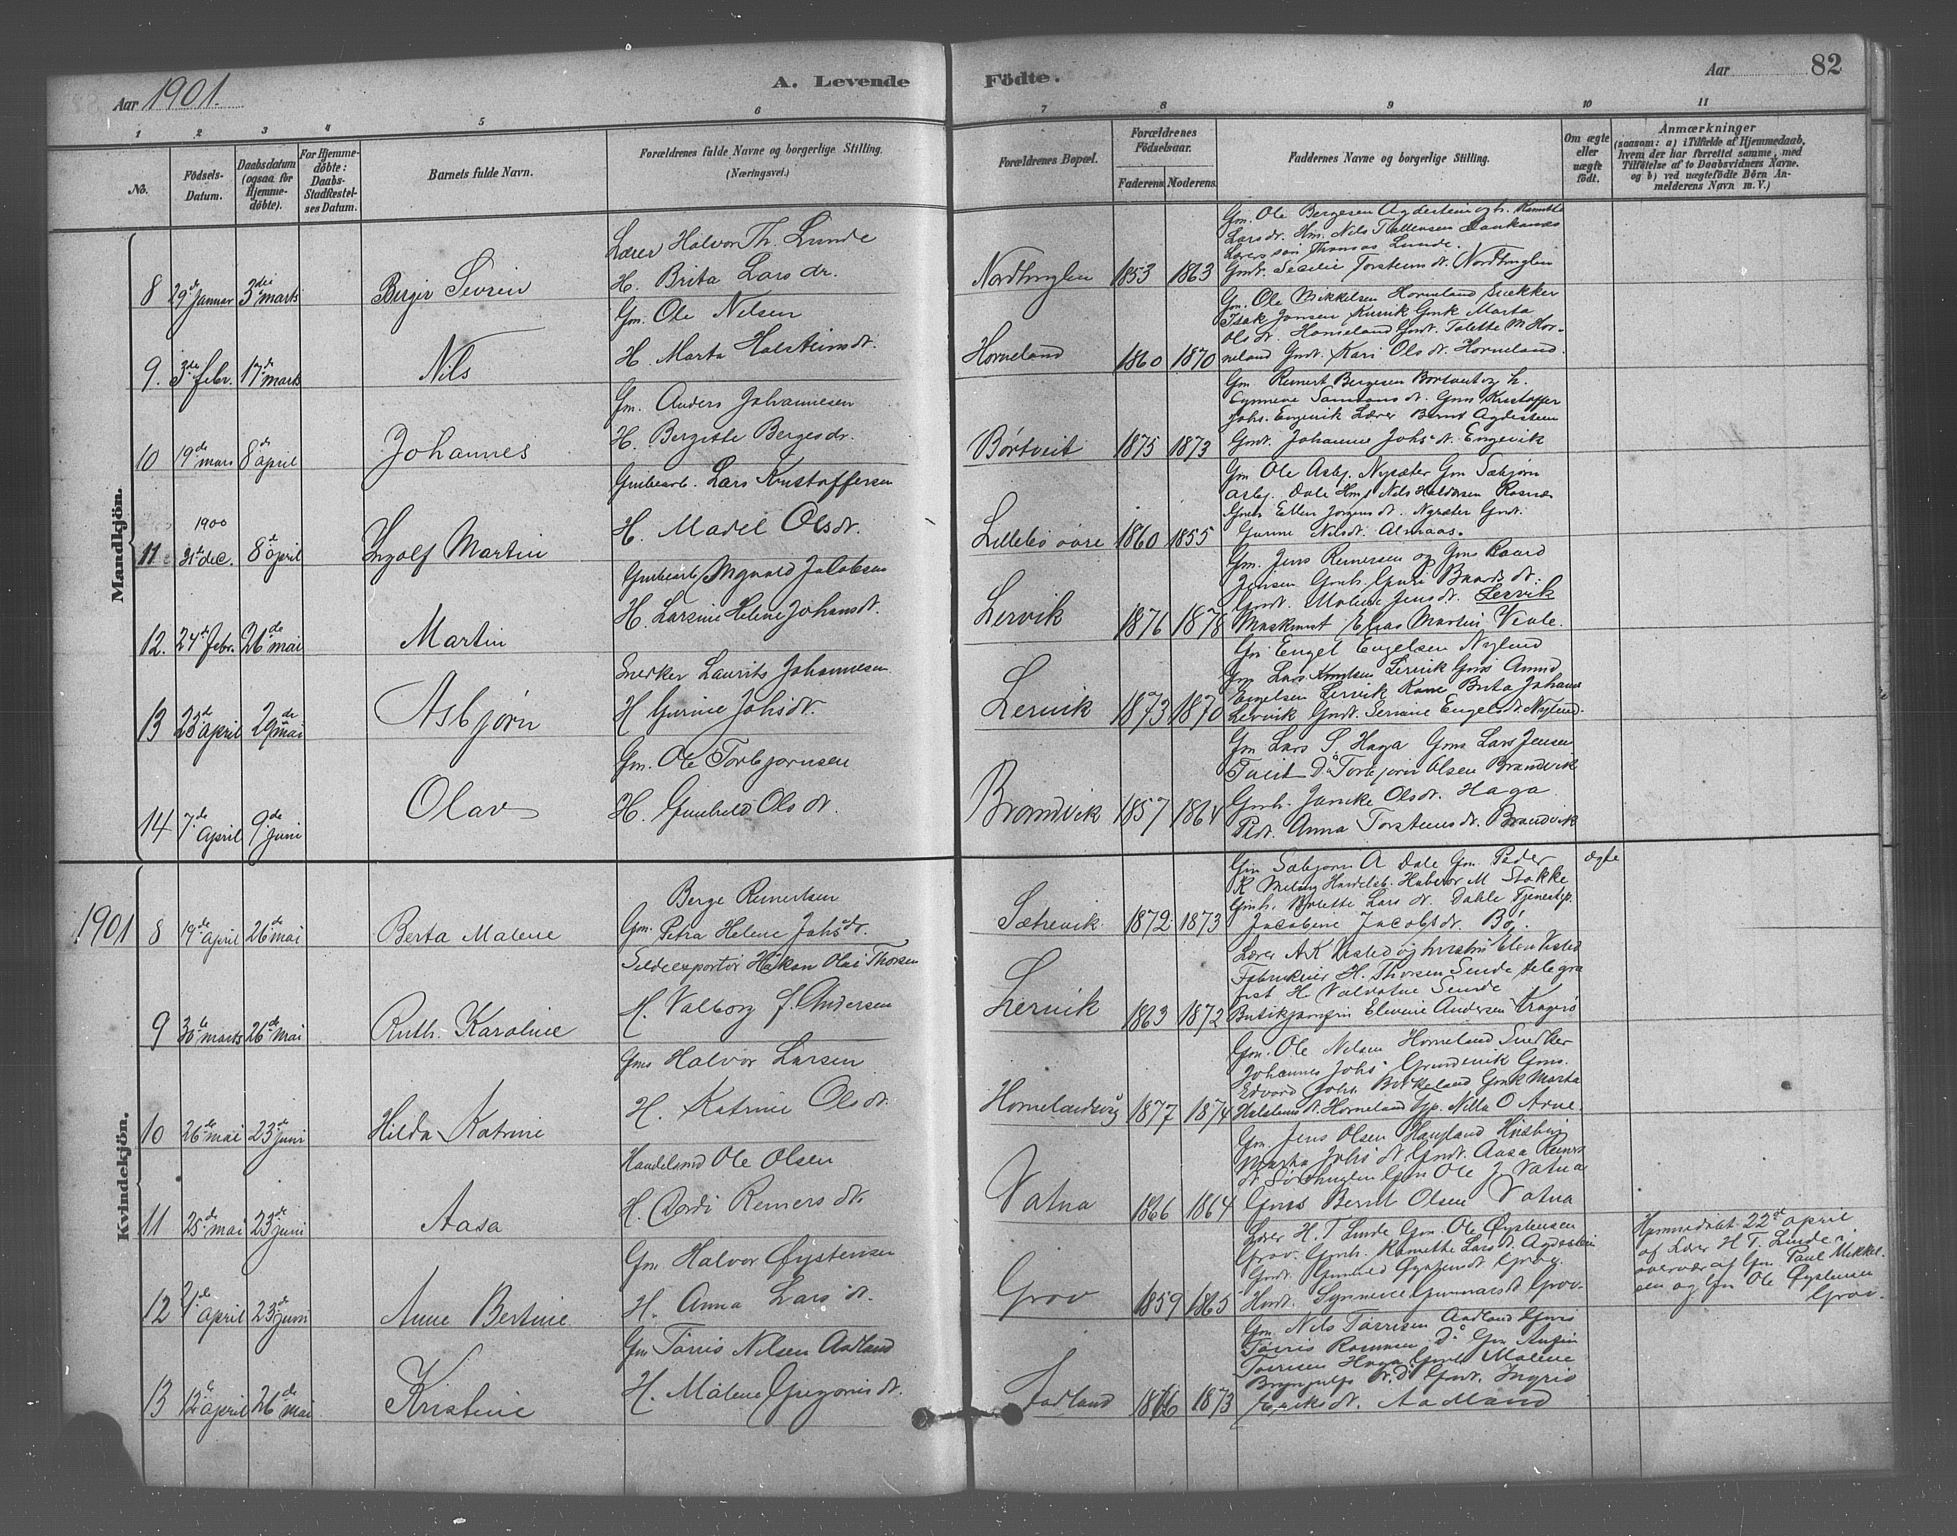 Aar 1901.
A. Levende
Födte.
Aar
82
1
2
3
4
5
6
7
8
9
10
11
No.
Födsels-
Datum.
Daabsdatum
(ogsaa for
Hjemme-
döbte).
For Hjemme-
döbte:
Daabs-
Stadfæstel-
ses Datum.
Barnets fulde Navn.
Forældrenes fulde Navne og borgerlige Stilling.
(Næringsvei.)
Forældrenes Bopæl.
Forældrenes
Födselsaar.
Faderens.
Moderens.
Faddernes Navne og borgerlige Stilling.
Om ægte
eller
uægte
födt.
Anmærkninger
(saasom: a) i Tilfælde af Hjemmedaab,
hvem der har forrettet samme, med
Tilföielse af to Daabsvidners Navne.
og b) ved uægtefödte Börn An-
melderens Navn m. V.)
Mandkjön.
8 29de januar 3die marts Birger Sevrin
Lærer Halvor Th. Lunde
H. Brita Larsdr.
Nordhuglen 1853 1863
Gm. Ole Bergesen Agdestein og h.
Larsdr. Hm. Nils
Lærersøn Thomas Lunde.
Gmdt. Torsteinsdt. Nordhuglen
9. 3de febr. 17de marts Nils
Gm. Ole Nilsen
H. Marta Halsteinsdt.
Horneland 1860 1870
Gm. Ole Mikkelsen Horneland Snekker
Isak Jonsen Gmk Marta
Olsdt. Horneland Gmdt. Tolette M Hor-
neland Gmdt. Kari Olsdt. Horneland.
10 19de mars 8de april Johannes
Gm. Anders Johannesen
H. Bergitte Bergesdr.
Børtveit 1875 1873
Gm Reinert Bergesen Børtveit og h.
Synneve Samsonsdt. Gms Kristoffer
Johs. Engevik Lærer Bernt Agdestein
Gmdt. Johanne Johs.dt. Engevik
11 1900 31te dec. 8de april Ingolf Martin
Gmbearb. Lars Kristoffersen
H. Madel Olsdt.
Lillebø øvre 1860 1855
Gm Ole Asbj. Nysæter Gm Sæbjørn
Asbj. Dale Hm Nils Haldorsen
Gmh Ellen dt. Nysæter Gmdt.
Gurine Nilsdt. Almaas.
12. 24de febr. 26de mai Martin
Gmbearb. Ingvald Jakobsen
H. Larsine Helene Johansdt.
Lervik 1876 1878
Gm. Jens Reinersen og Gms Baard
Jensen Gmh. Guri Baardsdt.
Gmdt. Malene Jensdt. Lervik
Maskinist Elias Martin Veale.
13 23de april 29de mai Asbjørn
Snekker Laurits Johannesen
H Gurine Johs.dt.
Lervik 1873 1870
Gm Engel Engelsen Nylund
Gm. Lars Knutsen Lervik Gms Amund
Engelsen Lervik Kone Brita Johans
Lervik Gmdt. Serine Engelsdt. Nylund.
14 7de april 9de juni Olav
Gm. Ole Torbjørnsen
H. Gunhild Olsdt.
Brandvik 1857 1864
Gm Lars S. Haga Gms Lars Jensen
Tveit Do Torbjørn Olsen Brandvik
Gmh. Jannike Olsdt. Haga
Pdt. Anna Torsteinsdt. Brandvik
Kvindekjön.
1901 8 19de april 26de mai Berta Malene
Berge Reinertsen
Gm. Petra Helene Johsdr.
Sætrevik 1872 1873
Gm Sæbjørn A Dale Gm. Peder
K Meling Handelsb. Halvor M Stokke
Gmh. Larsdt. Dahle Tjenestep.
Jacobine Jacobsdt. Bø.
ægte
9 30te marts 26de mai Ruth Karoline
Sildeexportør Håkon Olai Thorsen
H. Valborg f. Andersen
Lervik 1863 1872
Lærer A K Vestad og hustru Elen Vestad
Fabrikeier H. Thorsen Sunde telegra
fist H Valvatne Sunde
Butikjomfru Elevine Andersen Kragerø
10 26de mai 23de juni Hilda Katrine
Gms Halvor Larsen
H. Katrine Olsdt.
Hornelandsvåg 1877 1874
Gm. Ole Nilsen Horneland Snedker
Johannes Johs Grundevik Gms.
Edvard Johs. Birkeland Gmk Marta
Halsteinsdt. Horneland Tjp. Nilla O Arne.
11 25de mai 23de juni Aasa
Handelsmd Ole Olsen
H. Dordi Reinersdt.
Vatna 1866 1864
Gm. Jens Olsen Haugland Hustru
Marta Johsdt. Gmdt. Aasa Reiners
dt. Sørhuglen Gm Ole J Vatna
Gms Bernt Olsen Vatna
12 4de april 23de juni Anne Bertine
Gm Halvor Øystensen
H. Anna Larsdt.
Grov 1859 1865
Lærer H. T Lunde Gm. Ole Øystensen
Grov. Gmh. Larsdt. Agdestein
Gmdt. Gunhild Øystensdt Grov.
Hmdt. Synneve Gunnarsdt Grov.
Hjemmedøbt 22de april
af Lærer H T. Lunde i
overvær af Gm. Paul Mikkel-
sen og Gm Ole Øystensen
Grov.
13 12te april 26de mai Kristine
Gm Tørris Nilsen Aadland
H. Malene Gregoriusdt.
Aadland 1866 1873
Gm. Nils Tørrisen Aadland Gms
Tørris Do Gm.
Tørrisen Haga Gmh Malene
dt. Do Gmdt. Ingrid
Eriksdt. Aadland